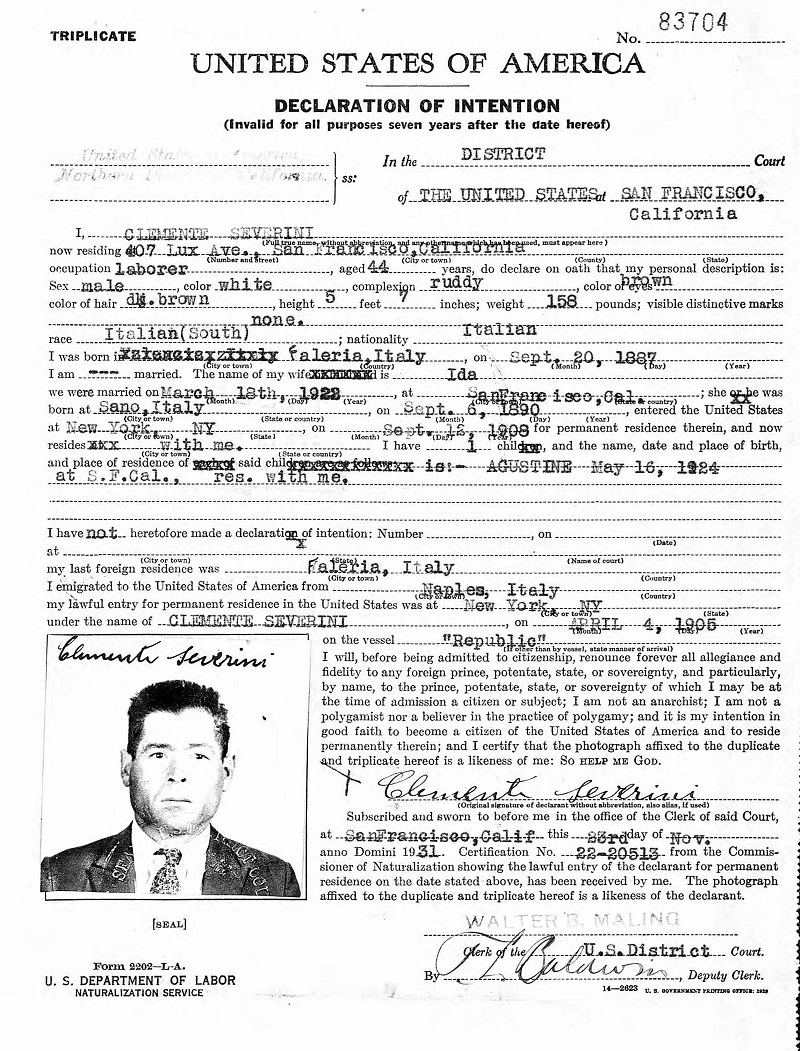 TRIPLICATE
No. 83704
UNITED STATES OF AMERICA
DECLARATION OF INTENTION
(Invalid for all purposes seven years after the date hereof)
United States of America,
Northern District of California. ss:
In the DISTRICT Court
of THE UNITED STATES at SAN FRANCISCO,
California
I, CLEMENTE SEVERINI
(Full true name, without abbreviation, and any other name which has been used, must appear here)
now residing 407 Lux Ave., San Francisco, California
(Number and street) (City or town) (County) (State)
occupation laborer, aged 44 years, do declare on oath that my personal description is:
Sex male, color white, complexion ruddy, color of eyes brown
color of hair dk.brown, height 5 feet 7 inches; weight 158 pounds; visible distinctive marks
none.
race Italian(South); nationality Italian
I was born in Faleria, Italy, on Sept. 20, 1887
(City or town) (Country) (Month) (Day) (Year)
I am --- married. The name of my wife is Ida
we were married on March 18th, 1922, at SanFrancisco,Cal.; she was
(Month) (Day) (Year) (City or town) (State or country)
born at Sano, Italy, on Sept. 6, 1890, entered the United States
(City or town) (State or country) (Month) (Day) (Year)
at New York, NY, on Sept. 12, 1908 for permanent residence therein, and now
(City or town) (State) (Month) (Day) (Year)
resides with me. I have 1 child, and the name, date and place of birth,
(City or town) (State or country)
and place of residence of said child is:- AGUSTINE May 16, 1924
at S.F.Cal., res. with me.
I have not heretofore made a declaration of intention: Number, on
(Date)
at
(City or town) (State) (Name of court)
my last foreign residence was Faleria, Italy
(City or town) (Country)
I emigrated to the United States of America from Naples, Italy
(City or town) (Country)
my lawful entry for permanent residence in the United States was at New York, NY
(City or town) (State)
under the name of CLEMENTE SEVERINI, on APRIL 4, 1905
(Month) (Day) (Year)
on the vessel "Republic"
(If other than by vessel, state manner of arrival)
Clemente Severini
I will, before being admitted to citizenship, renounce forever all allegiance and
fidelity to any foreign prince, potentate, state, or sovereignty, and particularly,
by name, to the prince, potentate, state, or sovereignty of which I may be at
the time of admission a citizen or subject; I am not an anarchist; I am not a
polygamist nor a believer in the practice of polygamy; and it is my intention in
good faith to become a citizen of the United States of America and to reside
permanently therein; and I certify that the photograph affixed to the duplicate
and triplicate hereof is a likeness of me: So HELP ME GOD.
Clemente Severini
(Original signature of declarant without abbreviation, also alias, if used)
Subscribed and sworn to before me in the office of the Clerk of said Court,
at SanFrancisco,Calif this 23rd day of Nov.
anno Domini 1931. Certification No. 22-20513 from the Commis-
sioner of Naturalization showing the lawful entry of the declarant for permanent
residence on the date stated above, has been received by me. The photograph
affixed to the duplicate and triplicate hereof is a likeness of the declarant.
[SEAL]
WALTER B. MALING
Clerk of the U.S.District Court.
By Baldwin, Deputy Clerk.
Form 2202—L-A.
U. S. DEPARTMENT OF LABOR
NATURALIZATION SERVICE
14—2623 U. S. GOVERNMENT PRINTING OFFICE: 1929